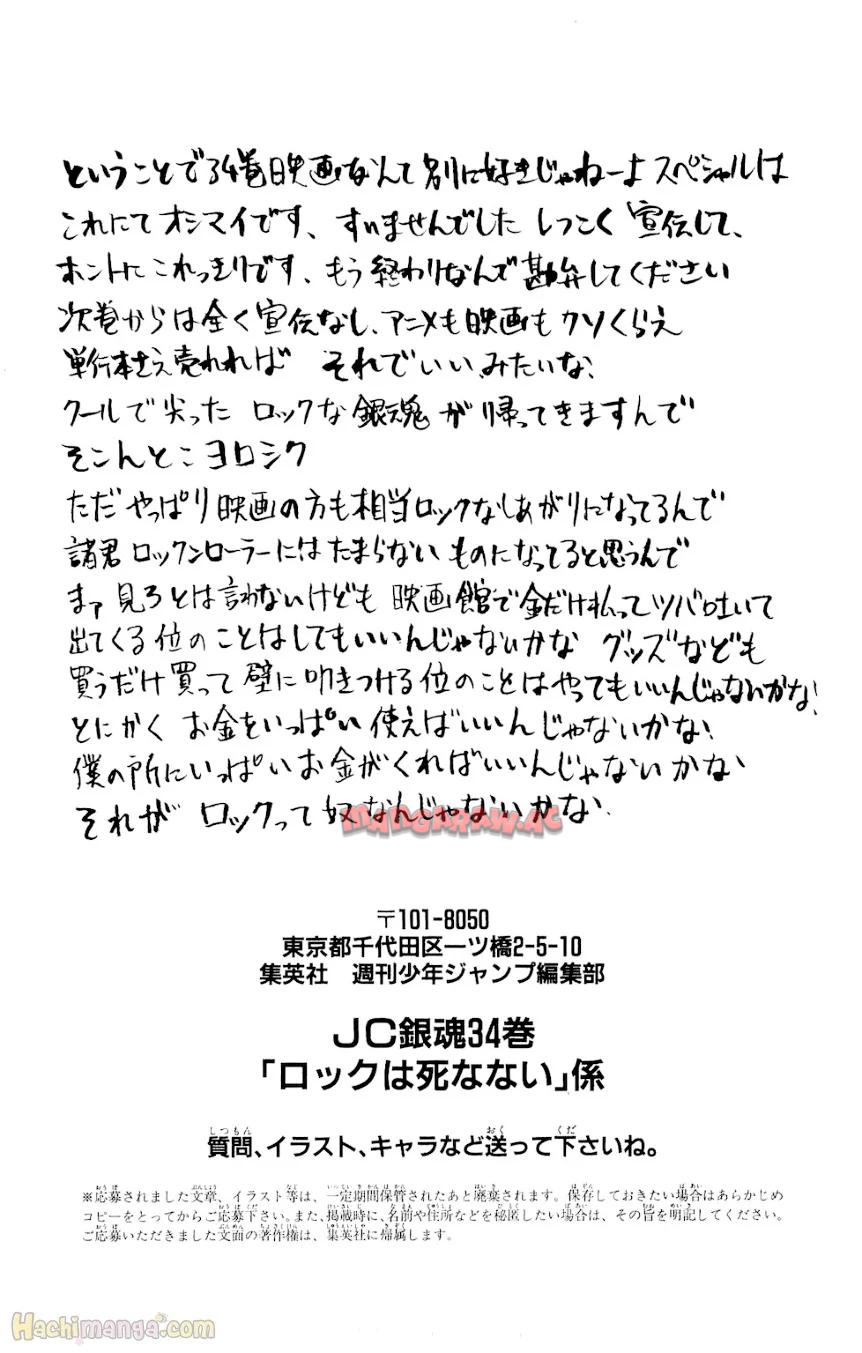 ということで34巻映画なんて別に好きじゃねーよスペシャルは
これにてオシマイです、すいませんでした しつこく宣伝して、
ホントにこれっきりです、もう終わりなんで勘弁してください
次巻からは全く宣伝なし、アニメも映画もクソくらえ
単行本さえ売れれば それでいいみたいな、
クールで尖った ロックな銀魂が帰ってきますんで
そこんとこヨロシク
ただやっぱり映画の方も相当ロックなしあがりになってるんで
諸君ロックンローラーにはたまらないものになってると思うんで
まァ見ろとは言わないけども 映画館で金だけ払ってツバ吐いて
出てくる位のことはしてもいいんじゃないかな グッズなども
買うだけ買って壁に叩きつける位のことはやってもいいんじゃないかな、
とにかく お金をいっぱい使えばいいんじゃないかな、
僕の所にいっぱいお金がくればいいんじゃないかな
それが ロックって奴なんじゃないかな、
MANGARAW.AC
〒101-8050
東京都千代田区一ツ橋2-5-10
集英社 週刊少年ジャンプ編集部
JC銀魂34巻
「ロックは死なない」係
質問、イラスト、キャラなど送って下さいね。
※応募されました文章、イラスト等は、一定期間保管されたあと廃棄されます。保存しておきたい場合はあらかじめ
コピーをとってからご応募下さい。また、掲載時に、名前や住所などを秘匿したい場合は、その旨を明記してください。
ご応募いただきました文面の著作権は、集英社に帰属します。
Hachimanga.com